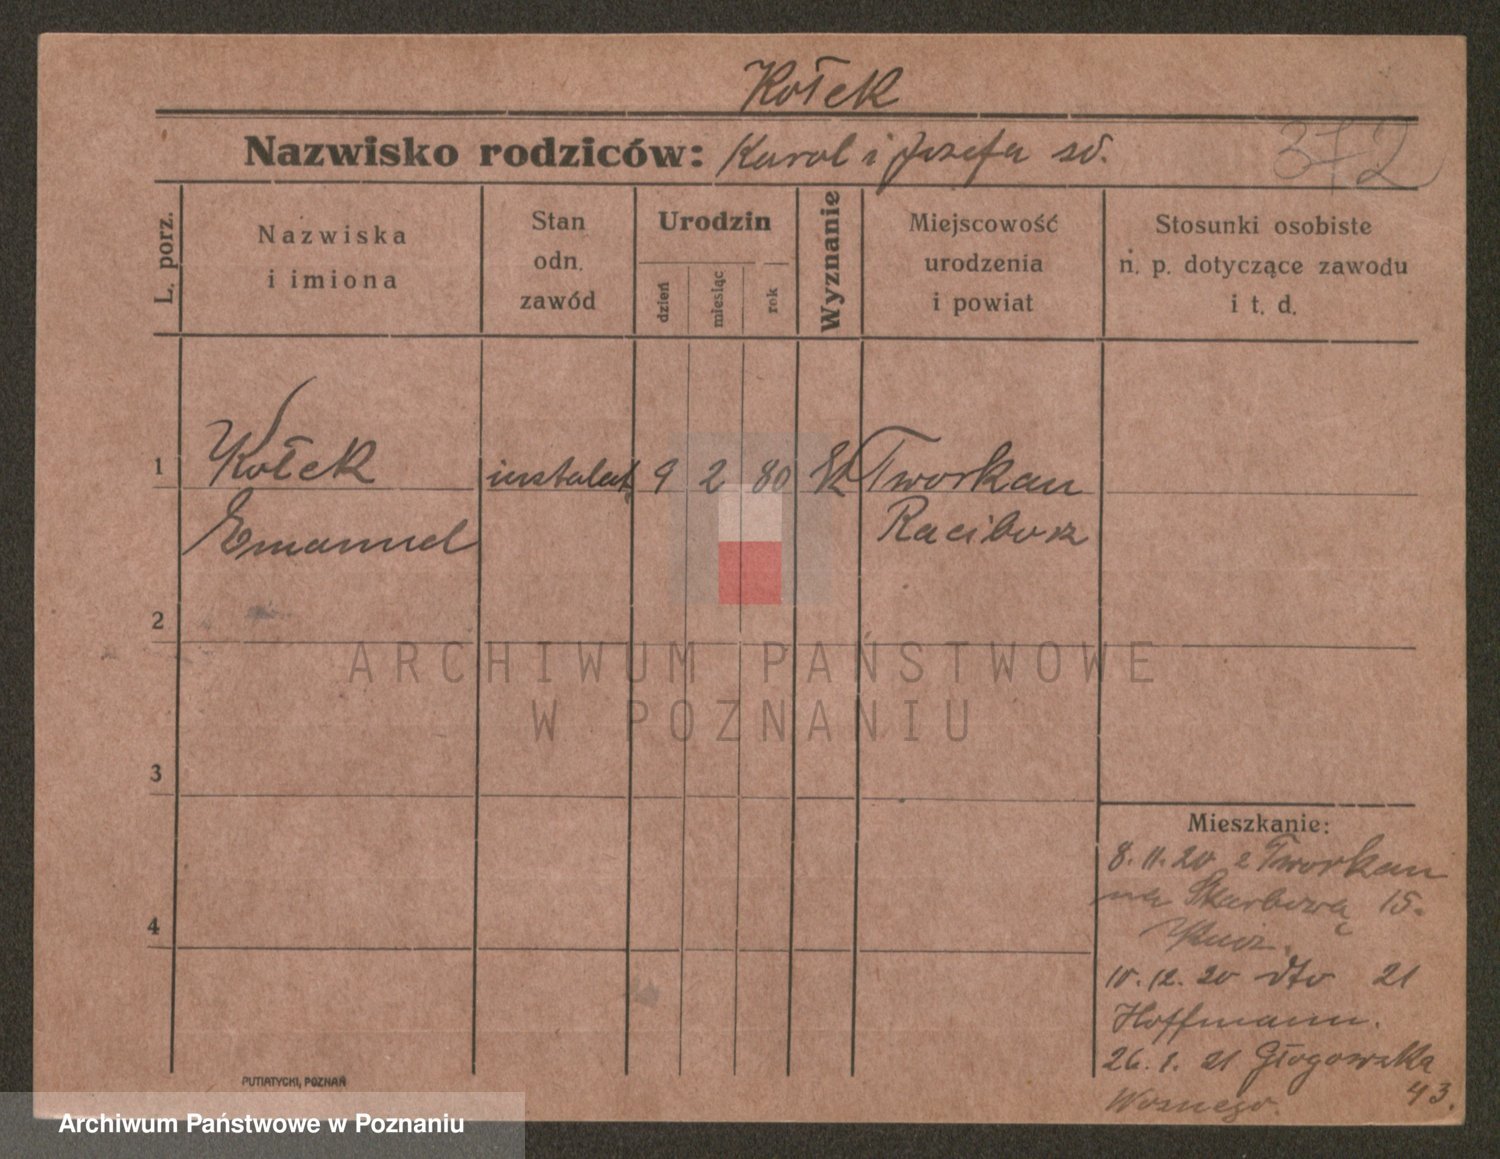 Kołek
Nazwisko rodziców: Karol i Józefa sd.
372
L. porz.
Nazwiska
i imiona
Stan
odn.
zawód
Urodzin
dzień
miesiąc
rok
Wyznanie
Miejscowość
urodzenia
i powiat
Stosunki osobiste
n. p. dotyczące zawodu
i t. d.
1 Kołek instalat. 9 2 80 k Tworkau
Emanuel Racibórz
2
3
4
Mieszkanie:
8. 11. 20 z Tworkau
na Skarbową 15.
10. 12. 20 dto 21
Hoffmann.
26. 1. 21 Głogowska
43.
PUTIATYCKI, POZNAŃ
ARCHIWUM PAŃSTWOWE
W POZNANIU
Archiwum Państwowe w Poznaniu